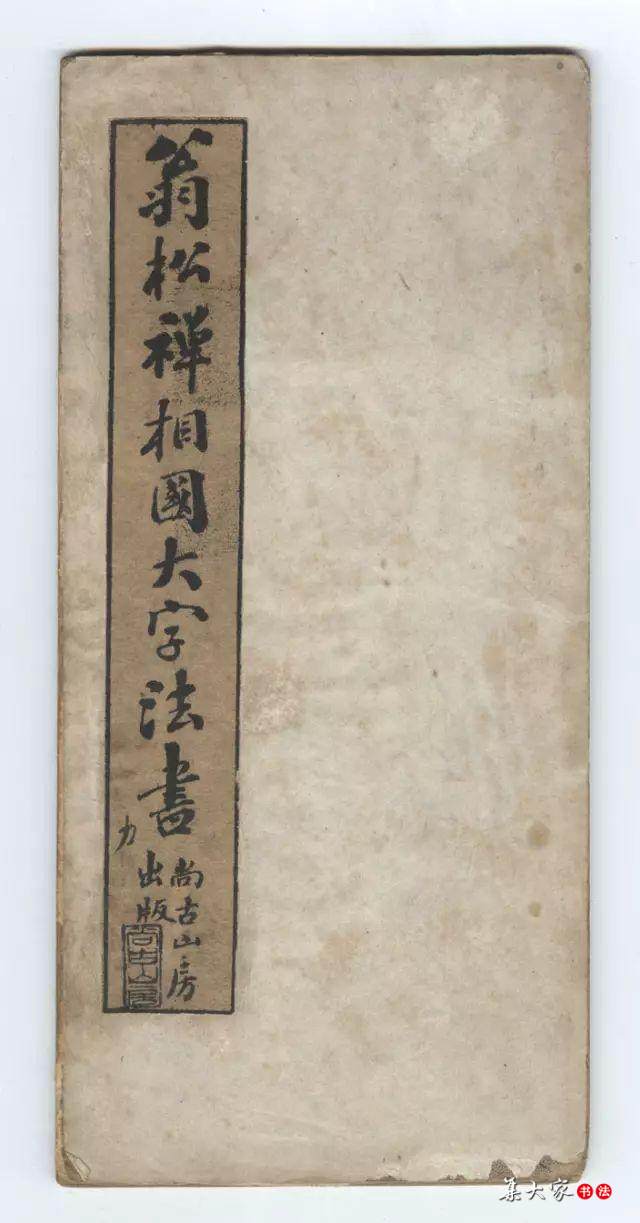 翁松禅相國大字法書
力
尚古山房
出版
尚古山房
集大家书法